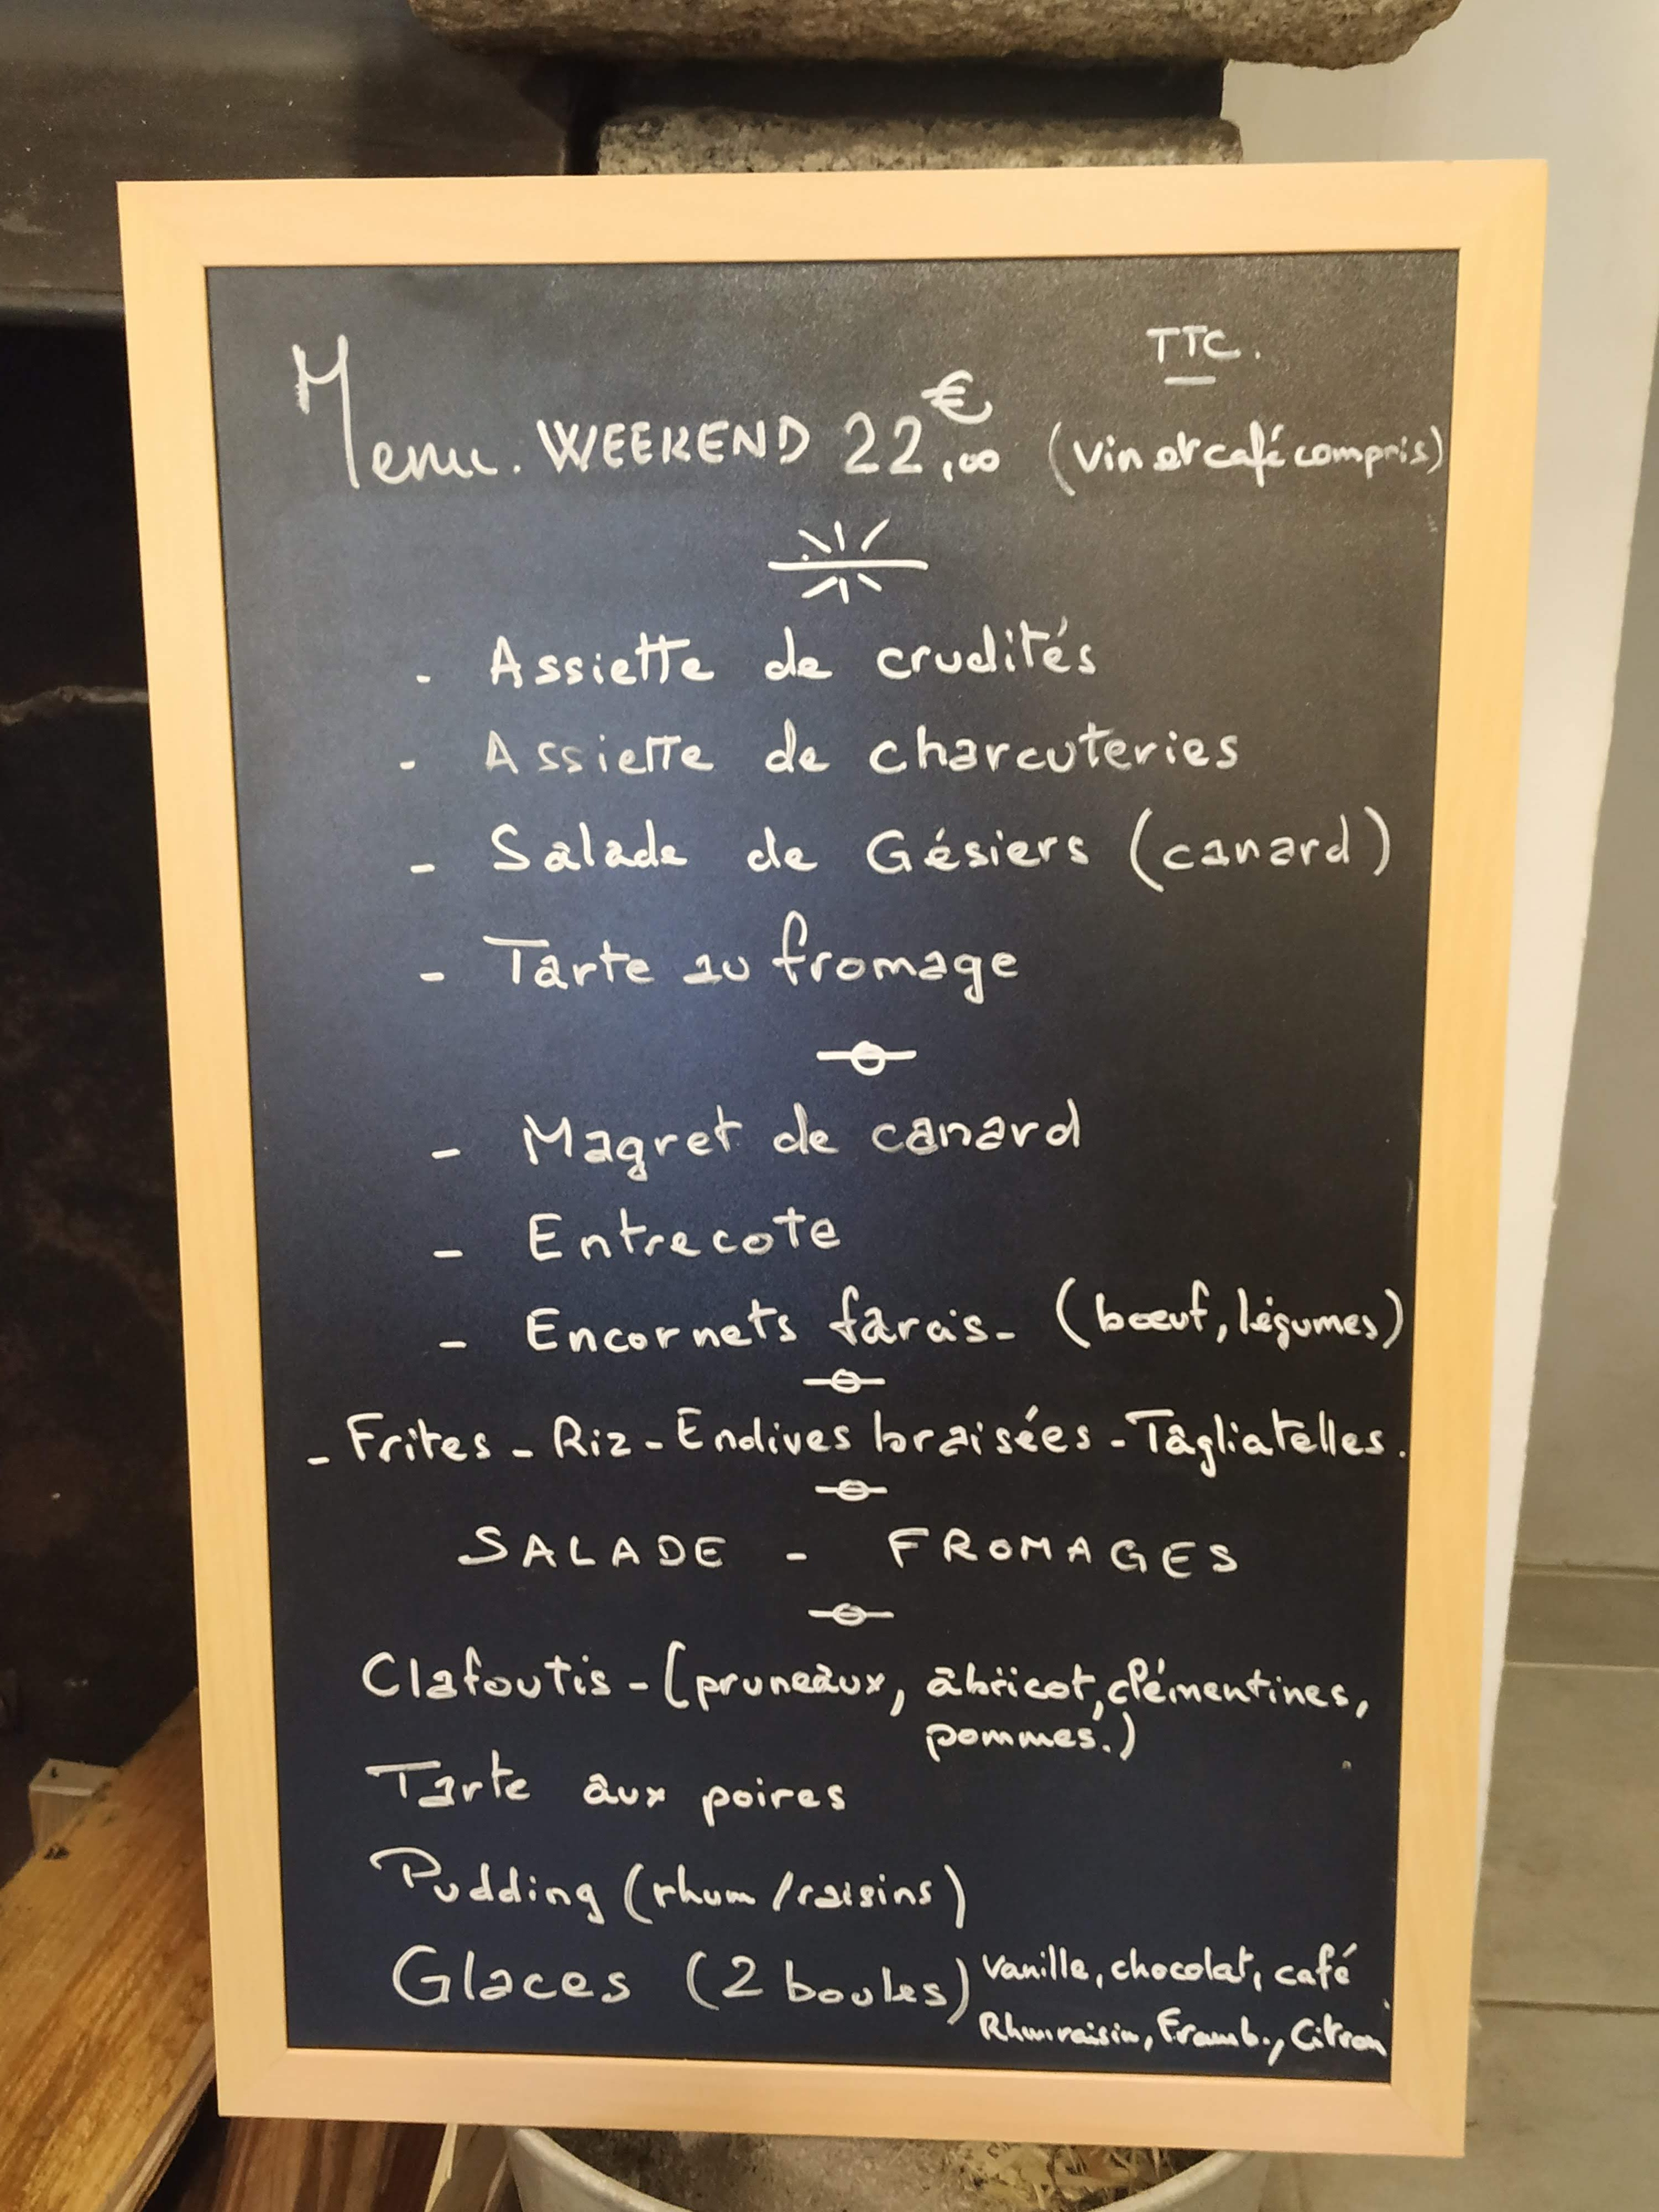 TTC.
Menu. WEEKEND 22,00€ (vin et café compris)
- Assiette de crudités
- Assiette de charcuteries
- Salade de Gésiers (canard)
- Tarte au fromage
- Magret de canard
- Entrecote
- Encornets farcis - (bœuf, légumes)
- Frites - Riz - Endives braisées - Tagliatelles.
SALADE - FROMAGES
Clafoutis - (pruneaux, abricot, clémentines,
pommes.)
Tarte aux poires
Pudding (rhum / raisins)
Glaces (2 boules) Vanille, chocolat, café
Rhum raisin, Framb., Citron